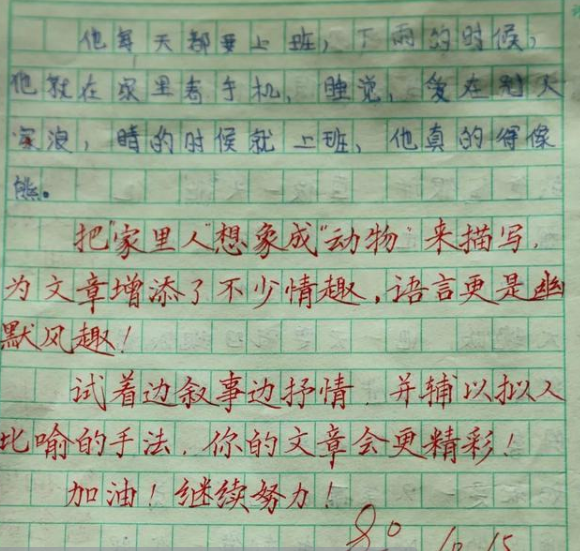 他每天都要上班，下雨的时候，
他就在家里看手机、睡觉，爱在别人
浪，晴的时候就上班、他真的得像
熊。
把"家里人"想象成"动物"来描写，
为文章增添了不少情趣，语言更是幽
默风趣！
试着边叙事边抒情，并辅以拟人
比喻的手法，你的文章会更精彩！
加油！继续努力！
80 10.15